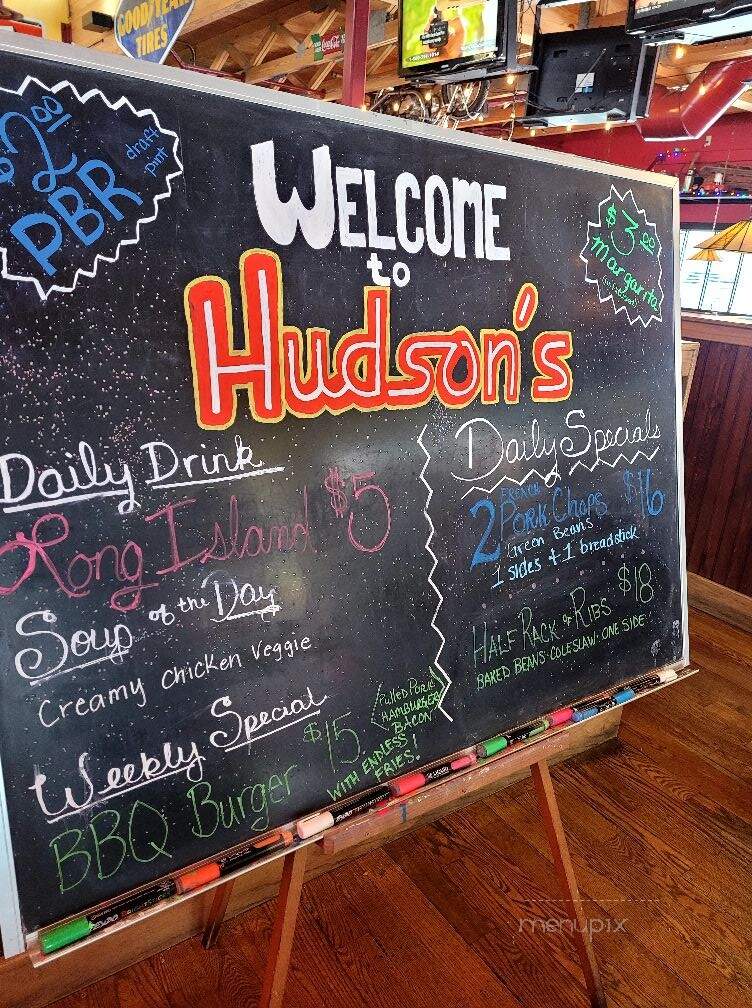 GOODYEAR
TIRES
Coca-Cola
$2.00
PBR
draft
pint
WELCOME
to
Hudson's
$3.00
margarita
Daily Drink
Long Island $5
Soup of the Day
Creamy chicken Veggie
Weekly Special
BBQ Burger $15.
(Pulled Pork
HAMBURGER
BACON
WITH ENDLESS
FRIES!
Daily Specials
2 FRENCH
PORK Chops $16
Green Beans
1 sides + 1 breadstick
HALF RACK of RIBS $18
BAKED BEANS·COLESLAW·ONE SIDE·
menupix